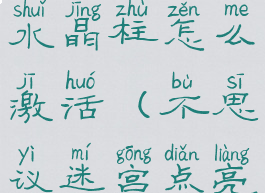 shuǐ jīng zhù zěn me
水晶柱怎么
jī huó bù sī
激活（不思
yì mí gōng diǎn liàng
议迷宫点亮